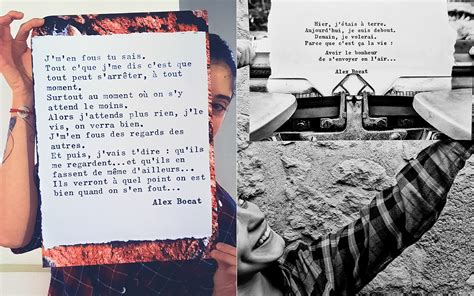 J'm'en fous tu sais.
Tout c'que j'me dis c'est que
tout peut s'arrêter, à tout
moment.
Surtout au moment où on s'y
attend le moins.
Alors j'attends plus rien, j'le
vis, on verra bien.
J'm'en fous des regards des
autres.
Et puis, j'vais t'dire : qu'ils
me regardent...et qu'ils en
fassent de même d'ailleurs...
Ils verront à quel point on est
bien quand on s'en fout...
Alex Bocat
Hier, j'étais à terre.
Aujourd'hui, je suis debout.
Demain, je volerai.
Parce que c'est ça la vie :
Avoir le bonheur
de s'envoyer en l'air...
Alex Bocat